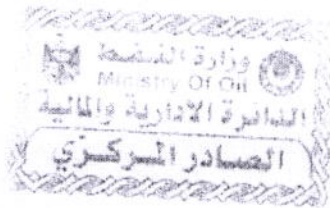 وزارة النفط
Ministry Of Oil
الدائرة الادارية والمالية
الصادر المركزي